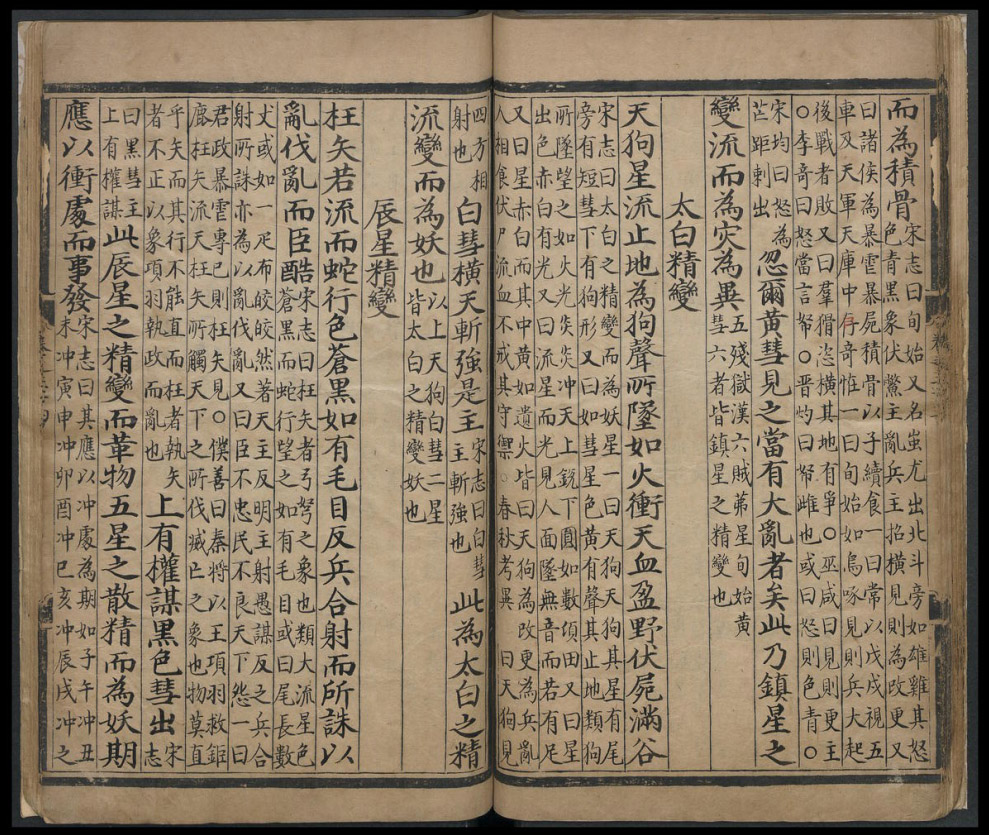 而為積骨宋志曰旬始又名蚩尤出北斗旁如雄雞其怒
色青黑象伏鱉主亂兵主招橫見則為改更又
曰諸侯為暴虐暴屍積骨以子續食一曰常以戊戌視五
車及天軍天庫中存奇惟一曰旬始如烏啄見則兵大起
後戰者敗又曰羣猾恣橫其地有爭○巫咸曰見則更主
○李奇曰怒當言帑○晋灼曰帑雌也或曰怒則色青○
宋均曰怒為
芒距刺出
忽爾黄彗見之當有大亂者矣此乃鎮星之
變流而為灾為異五殘獄漢六賊苐星旬始黄
彗六者皆鎮星之精變也
太白精變
天狗星流止地為狗聲所墜如火衝天血盈野伏屍滿谷
宋志曰太白之精變而為妖星一曰天狗天狗其星有尾
旁有短彗下有狗形又曰如彗星色黄有聲其止地類狗
所墜望之如火光炎炎冲天上鋭下圓如數傾田又曰星
出色赤白有光又曰流星而光見人面墜無音而若有足
又曰星赤白而其中如遺火皆曰天狗為改更為兵亂
人相食伏尸流血不戒其守禦○春秋考異曰天狗見
四方相
射也
白彗橫天斬強是主宋志曰白彗
主斬強也
此為太白之精
流變而為妖也以上天狗白彗二星
皆太白之精變妖也
辰星精變
枉矢若流而蛇行色蒼黑如有毛目反兵合射而所誅以
亂伐亂而臣酷宋志曰枉矢者弓弩之象也類大流星色
蒼黑而蛇行望之如有毛目或曰尾長數
丈或如一疋布皎皎然著天主反明主射愚謀反之兵合
射所誅亦為以亂伐亂又曰臣不忠民不良天下怨一曰
君政暴虐專已則枉矢見○僕善曰秦將以王項羽救鉅
鹿枉矢流天枉矢所觸天下之所伐滅亡之象也物莫直
乎矢而其行不能直而枉者執矢
者不正以象項羽執政而亂也
上有權謀黑色彗出宋
志
曰黑彗主
上有權謀
此辰星之精變而革物五星之散精而為妖期
應以衝處而事發宋志曰其應以冲處為期如子午冲丑
未冲寅申冲卯酉冲巳亥冲辰戌冲之